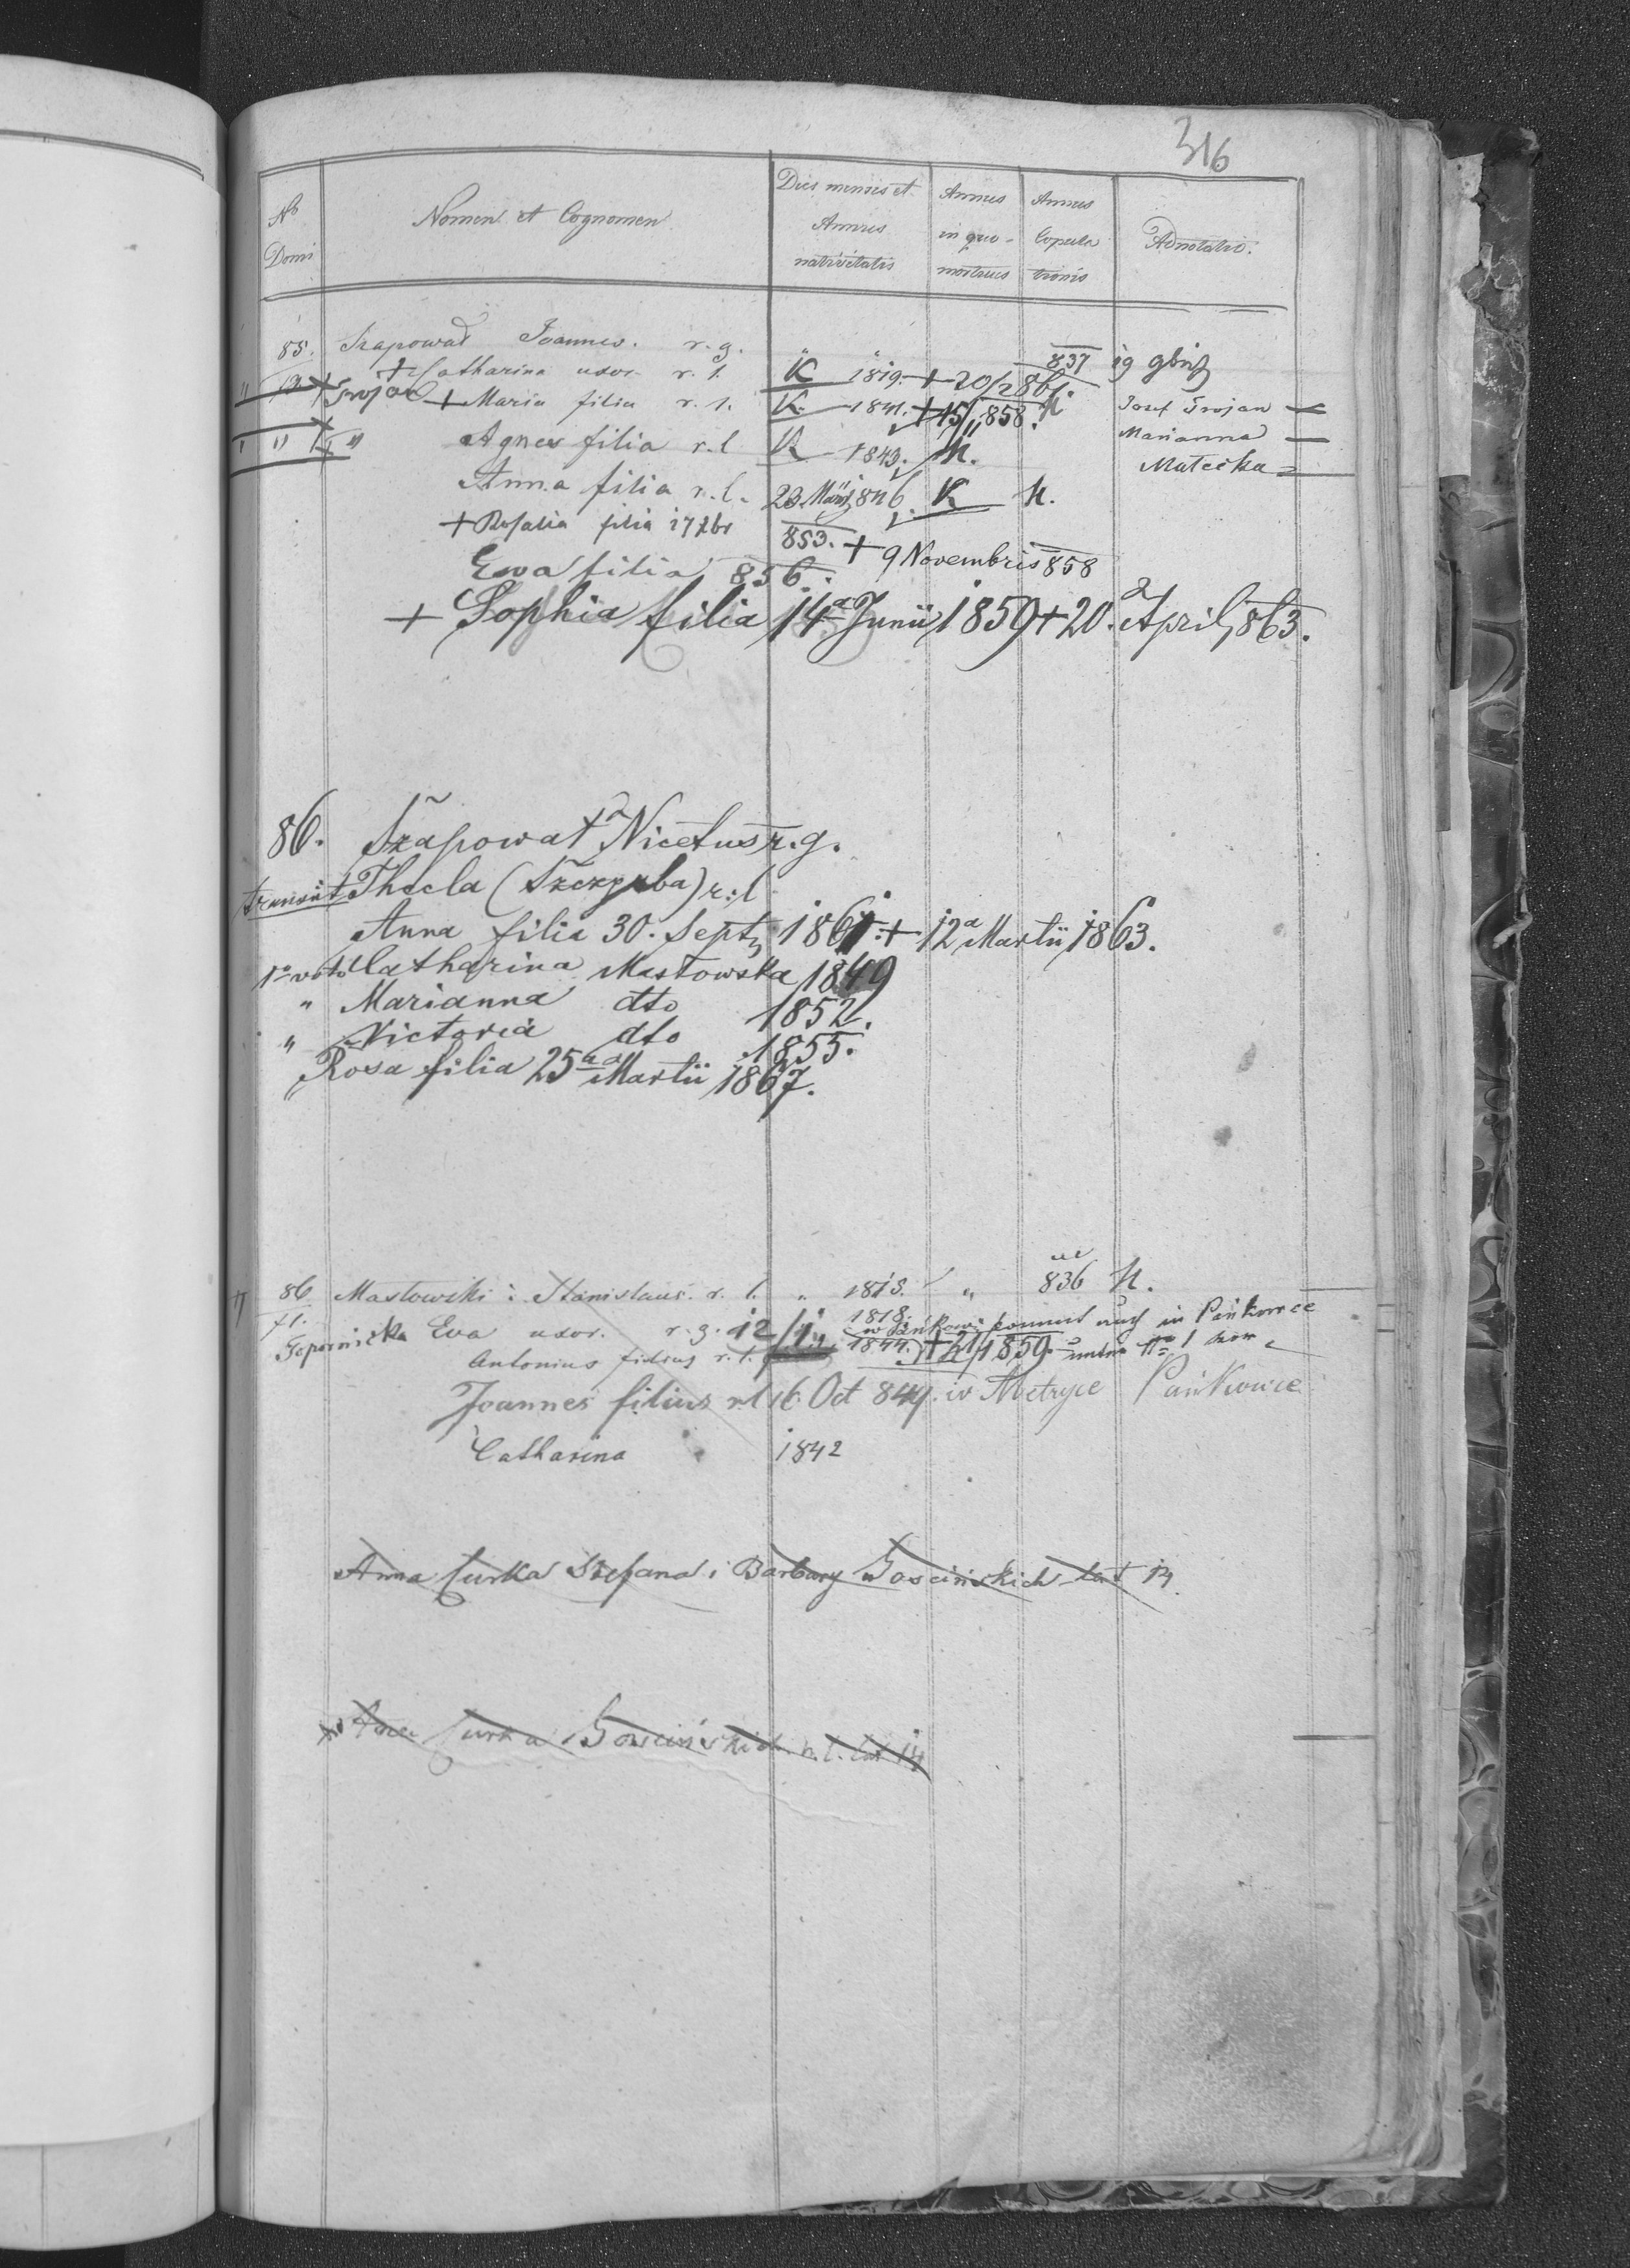 316
No Domi Nomen et Cognomen Dies mensis et Annus nativitatis Annus in quo mortuus Annus Copula tionis Adnotatio.
85. Szapowad Joannes. r. g. " " 837 19
+ Catharina uxor r. l. K 1819. + 20/2 861.
Trojan + Maria filia r. l. K. 1841. + 15/11 858. h Josef Trojan
" " " Agnes filia r. l K 1843. h. Marianna
Matecka
Anna filia r. l. 23 März 846. K h.
+ Rosalia filia 17 7br 853. + 9 Novembris 858
Ewa filia 856.
+ Sophia filia 14a Junii 1859 + 20. April 863.
86. Szapowat Nicetus r. g.
transiit Thecla (Szczyrba) r. l
Anna filia 30. Sept 1861. + 12a Martii 1863.
1o voto Catharina Mastowska 1849
" Marianna dto 1852.
" Victoria dto 1855.
" Rosa filia 25a Martii 1867.
86 Mastowski Stanislaus. r. l. " 1813. " 836 h.
71. 1818.
Topornicka Eva uxor. r. g. 12/ kommt auch in Pańkowce
Antonius filius r. l. 1844. + 21/1 859. unter No 1 vor
Joannes filius r. l 16. Oct 849. w Metryce Pańkowce
Catharina 1842
Anna Curka Stefana i Barbary Goscińskich lat 13
Curka Goscińskich r. l. lat 14